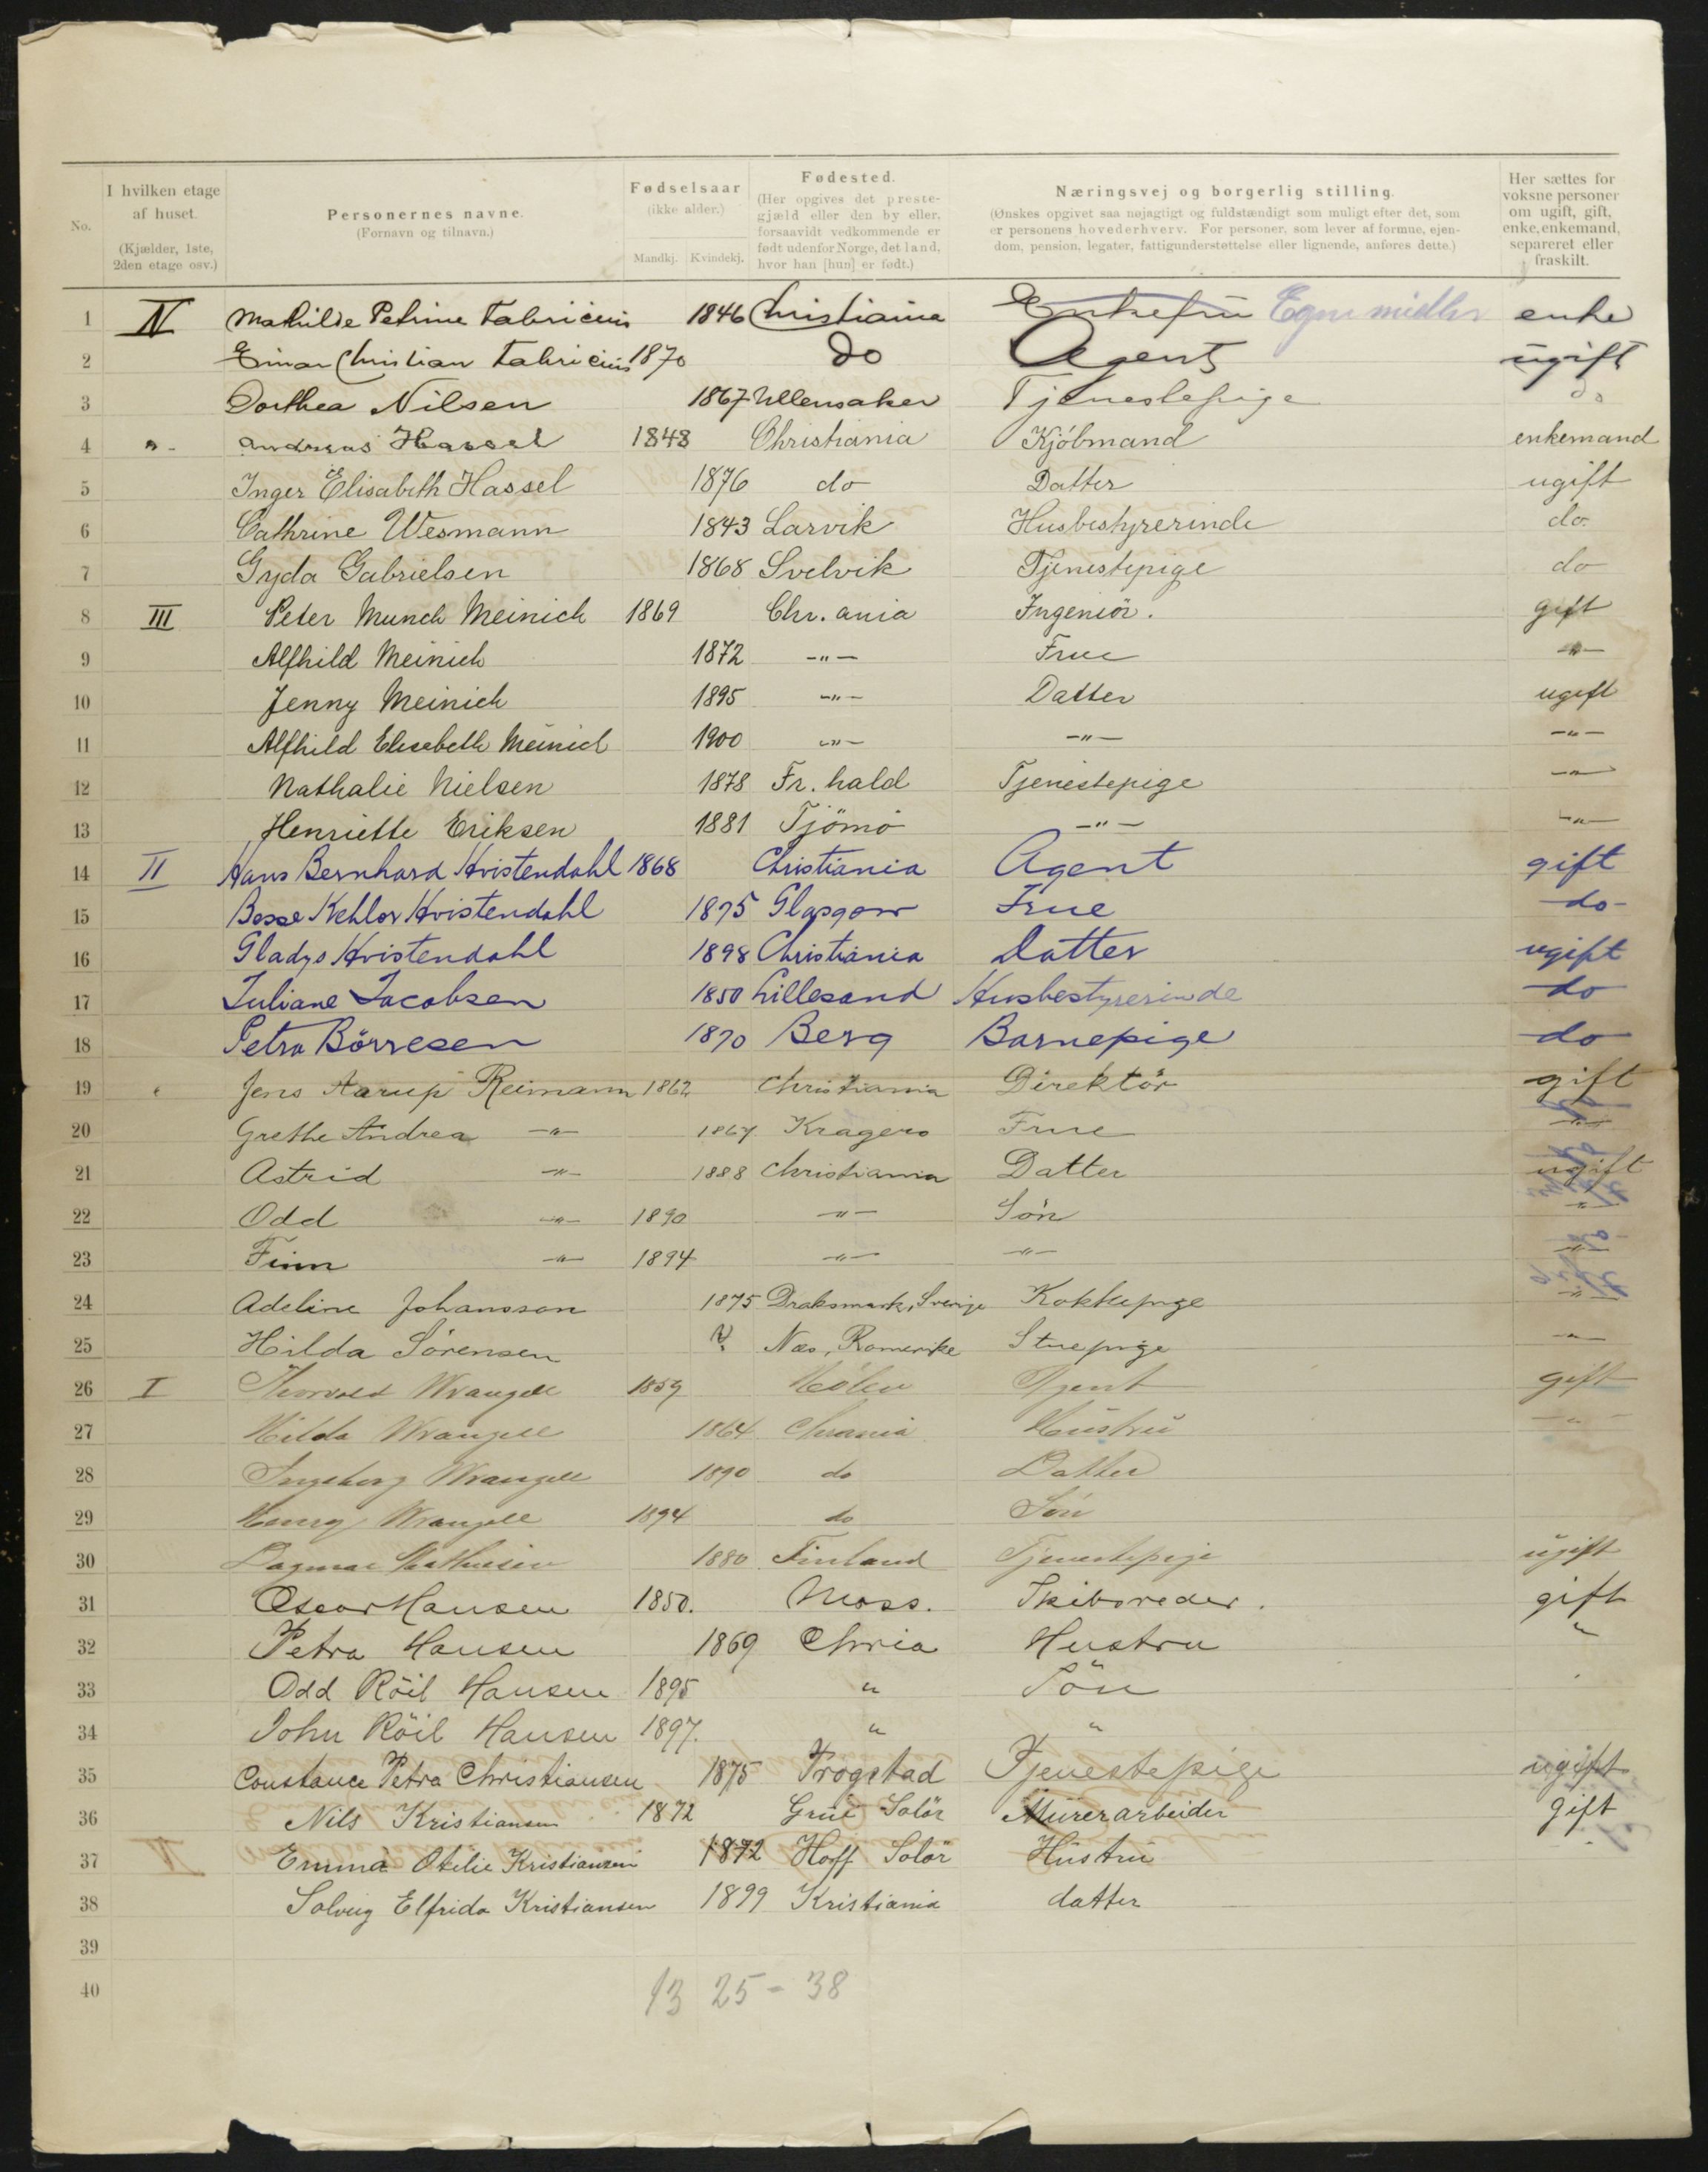 No. I hvilken etage af huset. (Kjælder, 1ste, 2den etage osv.) Personernes navne. (Fornavn og tilnavn.) Fødselsaar (ikke alder.) Mandkj. Kvindekj. Fødested. (Her opgives det prestegjæld eller den by eller, forsaavidt vedkommende er født udenfor Norge, det land, hvor han [hun] er født.) Næringsvej og borgerlig stilling. (Ønskes opgivet saa nøjagtigt og fuldstændigt som muligt efter det, som er personens hovederhverv. For personer, som lever af formue, ejendom, pension, legater, fattigunderstøttelse eller lignende, anføres dette.) Her sættes for voksne personer om ugift, gift, enke, enkemand, separeret eller fraskilt.
1 IV Mathilde Petrine Fabricius 1846 Christiania Enkefrü Egne midler enke
2 Einar Christian Fabricius 1870 do Agent ugift
3 Dorthea Nilsen 1867 Ullensaker Tjenestepige do
4 "- Andreas Hassel 1848 Christiania Kjøbmand enkemand
5 Inger Elisabeth Hassel 1876 do Datter ugift
6 Cathrine Wesmann 1843 Larvik Husbestyrerinde do.
7 Gyda Gabrielsen 1868 Svelvik Tjenestepige do
8 III Peter Munch Meinich 1869 Chr.ania Ingeniör. gift
9 Alfhild Meinich 1872 -"- Frue -"-
10 Jenny Meinich 1895 -"- Datter ugift
11 Alfhild Elisabeth Meinich 1900 -"- -"- -"-
12 Nathalie Nielsen 1878 Fr.hald Tjenestepige -"-
13 Henriette Eriksen 1881 Tjömö -"- -"-
14 II Hans Bernhard Hvistendahl 1868 Christiania Agent gift
15 Besse Kehlor Hvistendahl 1875 Glasgow Frue do-
16 Gladys Hvistendahl 1898 Christiania Datter ugift
17 Juliane Jacobsen 1850 Lillesand Husbestyrerinde do
18 Petra Börresen 1870 Berg Barnepige do
19 Jens Aarup Reimann 1862 Christiania Direktör gift
20 Grethe Andrea -"- 1867 Kragerø Frue -"-
21 Astrid -"- 1888 Christiania Datter ugift
22 Odd -"- 1890 -"- Sön -"-
23 Finn -"- 1894 -"- -"- -"-
24 Adeline Johansson 1875 Sverige Kokkepige -"-
25 Hilda Sörensen ? Nes, Romerike Stuepige -"-
26 I Thorvald Wrangell 1859 Agent gift
27 Hilda Wrangell 1864 Chrania Hüstrü -"-
28 Ingeborg Wrangell 1890 do Datter
29 Henry Wrangell 1894 do Sön
30 Dagmar Mathiesen 1880 Finland Tjenestepige ügift
31 Oscar Hansen 1850. Moss. Skibsreder. gift
32 Petra Hansen 1869 Chria Hustru "
33 Odd Röil Hansen 1895 " Sön
34 John Röil Hansen 1897. " "
35 Constance Petra Christiansen 1875 Trøgstad Tjenestepige ugift
36 Nils Kristiansen 1872 Grue Solör Mürerarbeider gift
37 Emma Otilie Kristiansen 1872 Hoff Solör Hüstrü
38 Solveig Elfrida Kristiansen 1899 Kristiania datter
39
40
13 25 - 38